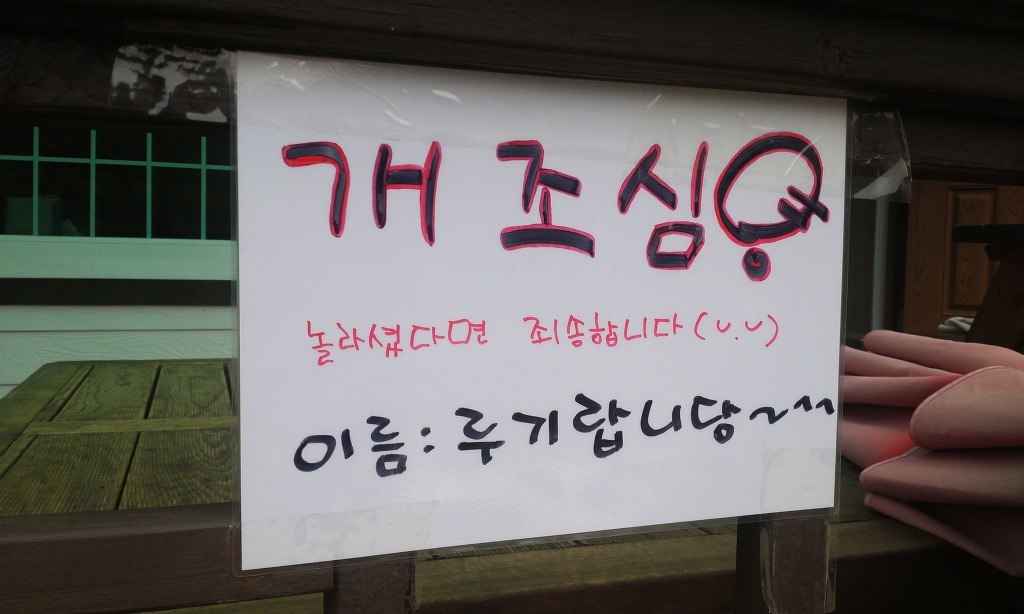 개 조심!
놀라셨다면 죄송합니다(ᴗ.ᴗ)
이름: 루기랍니당~^^